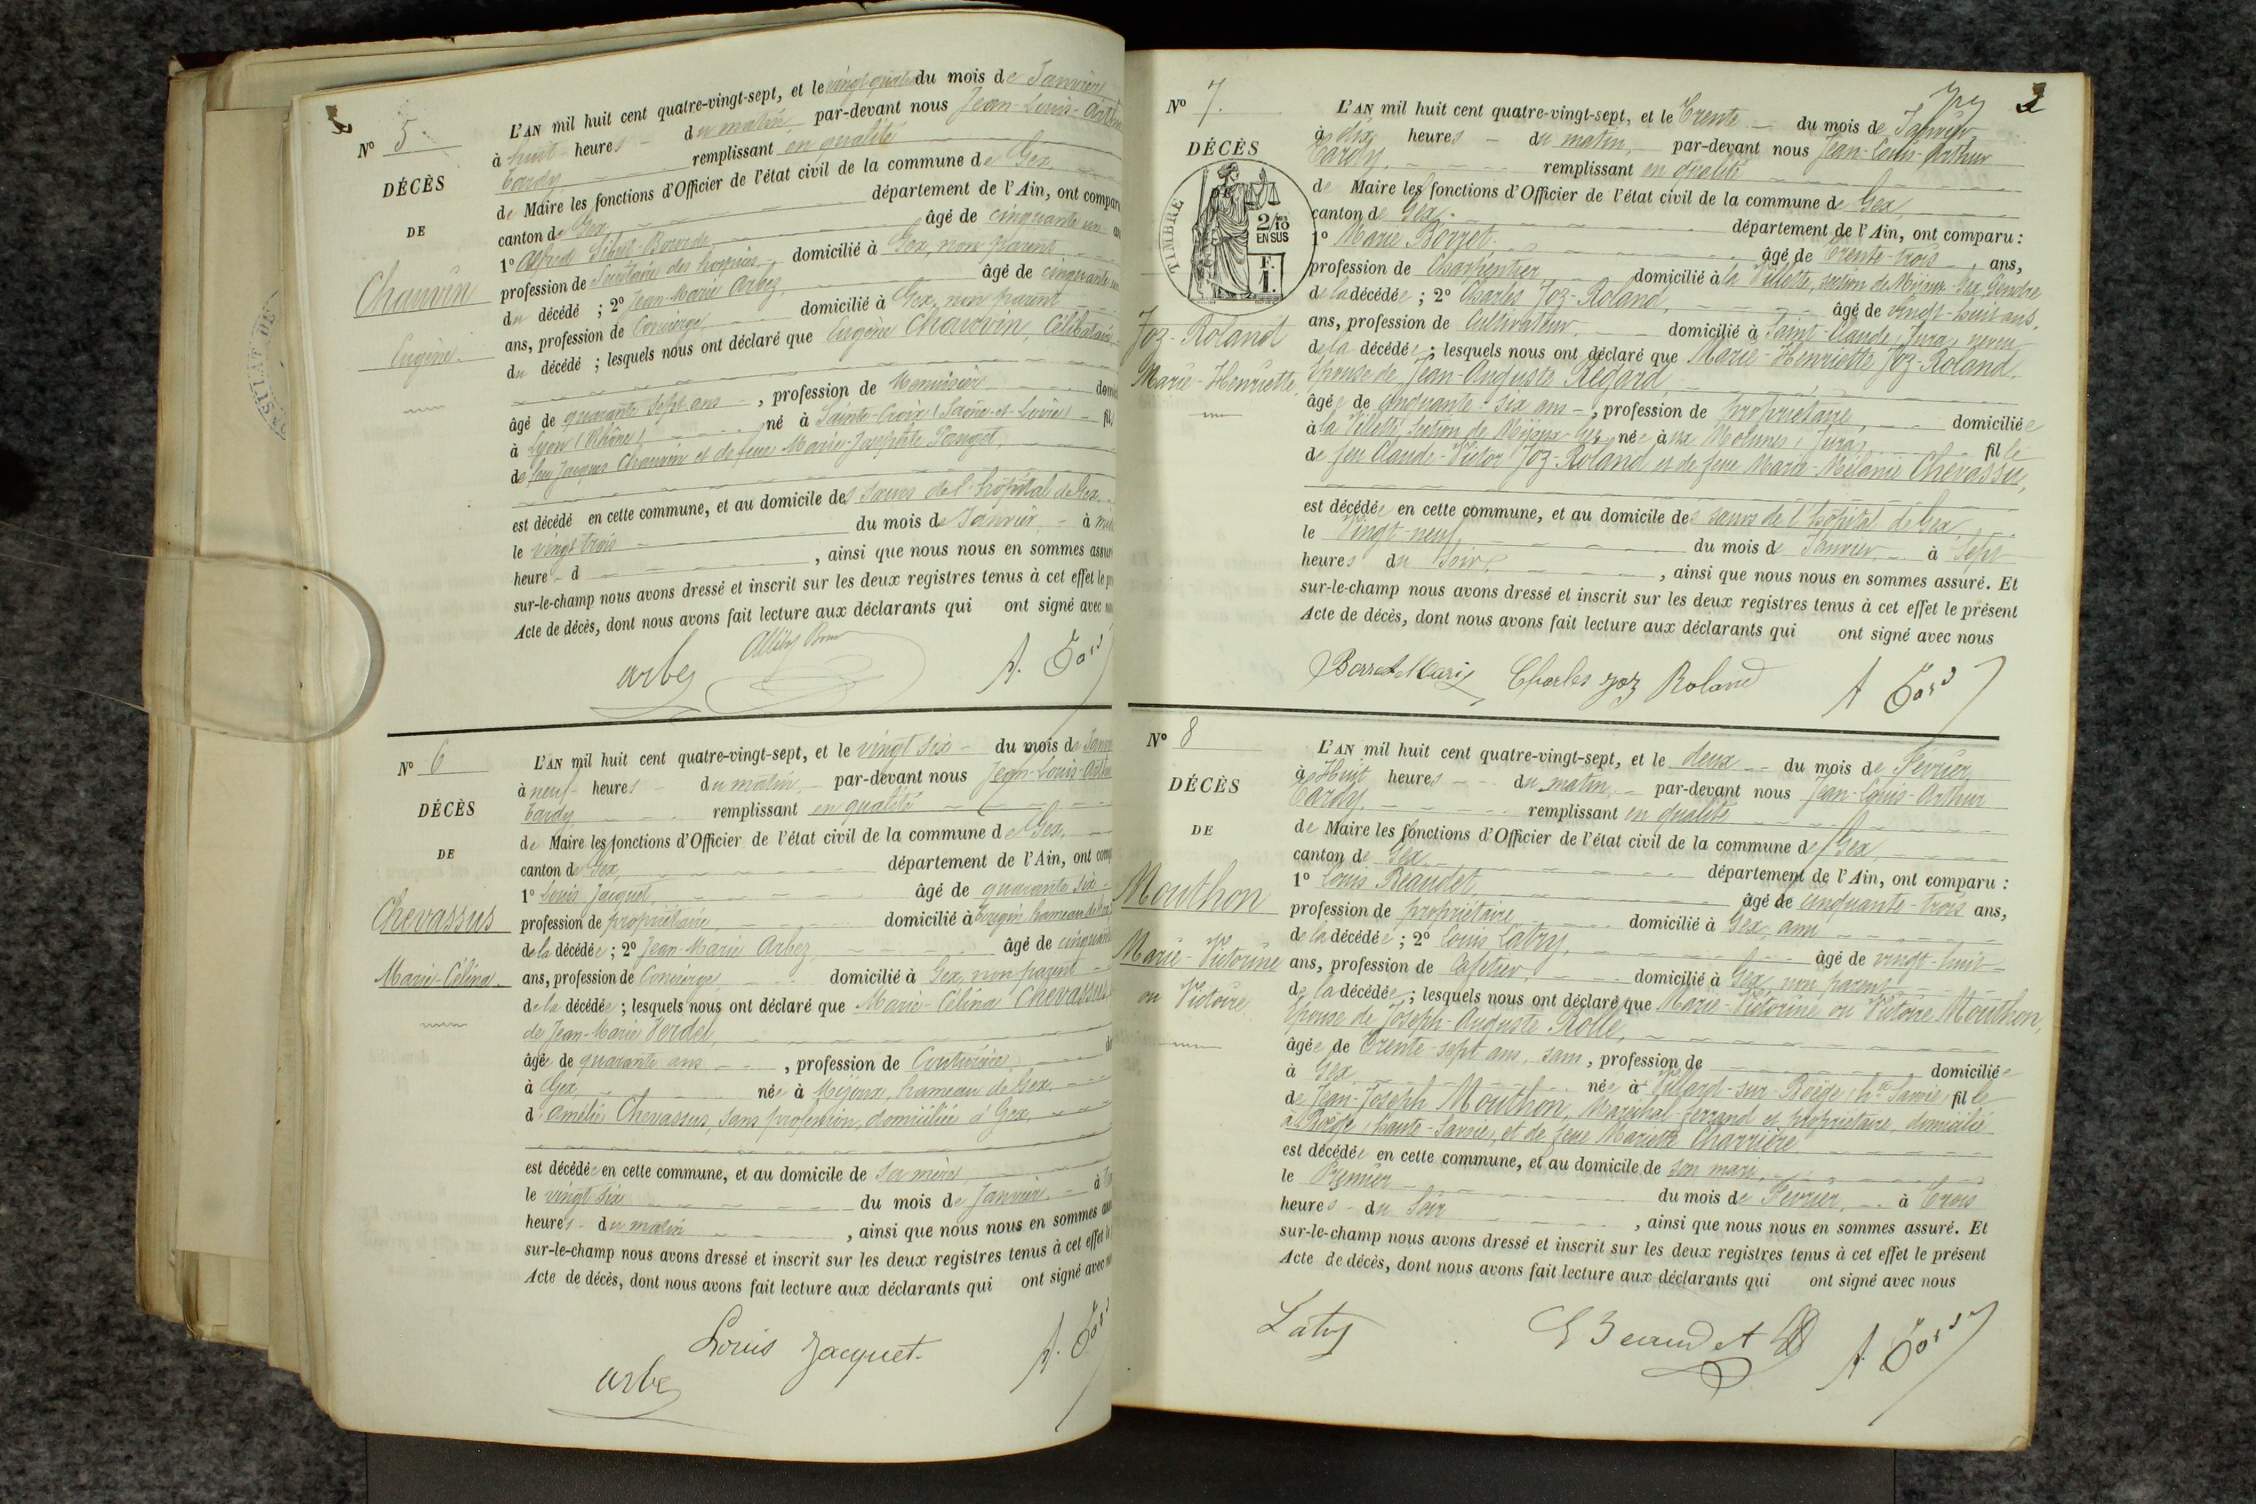 N° 5
DÉCÈS
DE
Chauvin
Eugène.
L'AN mil huit cent quatre-vingt-sept, et le vingt quatre du mois de Janvier
à huit heures du matin, par-devant nous Jean-Louis-Arthur
Tardy remplissant en qualité
de Maire les fonctions d'Officier de l'état civil de la commune de Gex,
canton de Gex, département de l'Ain, ont comparu
1° Alfred âgé de cinquante un
profession de Secrétaire des hospices, domicilié à Gex, non parent
du décédé ; 2° Jean-Marie Arbez, âgé de cinquante
ans, profession de Concierge, domicilié à Gex, non parent
du décédé ; lesquels nous ont déclaré que Eugène Chauvin, Célibataire
âgé de quarante sept ans, profession de Menuisier
à Lyon (Rhône), né à Sainte-Croix (Saône-et-Loire) fils
de feu Jacques Chauvin et de feue Marie-Josephte
est décédé en cette commune, et au domicile des sœurs de l'hôpital de Gex
le vingt trois du mois de Janvier à
heure d , ainsi que nous nous en sommes assuré
sur-le-champ nous avons dressé et inscrit sur les deux registres tenus à cet effet le
Acte de décès, dont nous avons fait lecture aux déclarants qui ont signé avec
arbez
N° 6
DÉCÈS
DE
Chevassus
Marie-Célina.
L'AN mil huit cent quatre-vingt-sept, et le vingt six du mois de
à neuf heures du matin, par-devant nous Jean-Louis-Arthur
Tardy remplissant en qualité
de Maire les fonctions d'Officier de l'état civil de la commune de Gex,
canton de Gex, département de l'Ain, ont
1° Louis Jacquet, âgé de quarante six
profession de propriétaire, domicilié à hameau de
de la décédée ; 2° Jean-Marie Arbez âgé de
ans, profession de Concierge, domicilié à Gex, non parent
de la décédée ; lesquels nous ont déclaré que Marie-Célina Chevassus
de Jean-Marie
âgée de quarante ans, profession de Couturière,
à Gex, née à Mijoux, hameau de Gex,
d'amélie Chevassus, sans profession, domiciliée à Gex,
est décédée en cette commune, et au domicile de sa mère,
le vingt six du mois de Janvier à
heures du matin, ainsi que nous nous en sommes
sur-le-champ nous avons dressé et inscrit sur les deux registres tenus à cet effet
Acte de décès, dont nous avons fait lecture aux déclarants qui ont signé avec
Louis Jacquet.
arbez
2
N° 7.
DÉCÈS
TIMBRE
2/10
EN SUS
F.
1.
Joz-Roland
Marie-Henriette
L'AN mil huit cent quatre-vingt-sept, et le Trente du mois de Janvier
à dix heures du matin, par-devant nous Jean-Louis-Arthur
Tardy, remplissant en qualité
de Maire les fonctions d'Officier de l'état civil de la commune de Gex,
canton de Gex. département de l'Ain, ont comparu :
1° Marie Borret âgé de trente-trois ans,
profession de Charpentier, domicilié à la Villette, section de Mijoux-Gex, Gendre
de la décédée ; 2° Charles Joz-Roland, âgé de vingt-huit ans,
ans, profession de Cultivateur, domicilié à Saint-Claude, Jura, neveu
de la décédée ; lesquels nous ont déclaré que Marie-Henriette Joz-Roland
Epouse de Jean-Auguste Regard,
âgée de cinquante-six ans, profession de propriétaire, domiciliée
à la Villette section de Mijoux-Gex, née aux Molunes, Jura, fille
de feu Claude-Victor Joz-Roland et de feue Marie-Mélanie Chevassus,
est décédée en cette commune, et au domicile des sœurs de l'hôpital de Gex,
le Vingt-neuf du mois de Janvier à Sept
heures du Soir, ainsi que nous nous en sommes assuré. Et
sur-le-champ nous avons dressé et inscrit sur les deux registres tenus à cet effet le présent
Acte de décès, dont nous avons fait lecture aux déclarants qui ont signé avec nous
Borret Marie Charles joz Roland A Tardy
N° 8
DÉCÈS
DE
Mouthon
Marie-Victorine
ou Victoire
L'AN mil huit cent quatre-vingt-sept, et le deux du mois de Février
à Huit heures du matin, par-devant nous Jean-Louis-Arthur
Tardy, remplissant en qualité
de Maire les fonctions d'Officier de l'état civil de la commune de Gex
canton de Gex département de l'Ain, ont comparu :
1° Louis Béaudet âgé de cinquante-trois ans,
profession de propriétaire domicilié à Gex, ami
de la décédée ; 2° Louis Latry, âgé de vingt-huit
ans, profession de Cafetier, domicilié à Gex, non parent
de la décédée ; lesquels nous ont déclaré que Marie-Victorine ou Victoire Mouthon,
Epouse de Joseph-Auguste Rolle,
âgée de Trente-sept ans, sans, profession de domiciliée
à Gex née à Villard-sur-Boëge, hte Savoie fille
de Jean-Joseph Mouthon, Maréchal-ferrand et propriétaire, domicilié
à Boëge, haute-Savoie, et de feue Mariette Charrière
est décédée en cette commune, et au domicile de son mari,
le Premier du mois de Février, à Trois
heures du Soir, ainsi que nous nous en sommes assuré. Et
sur-le-champ nous avons dressé et inscrit sur les deux registres tenus à cet effet le présent
Acte de décès, dont nous avons fait lecture aux déclarants qui ont signé avec nous
Latry L Beaudet A. Tardy